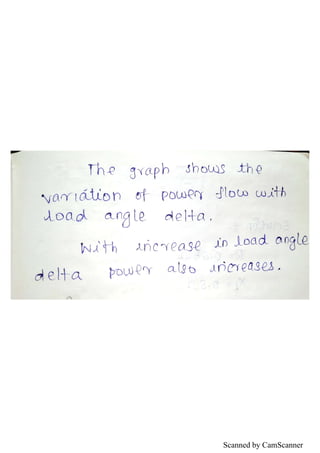 The graph shows the
variation of power flow with
load angle delta.
With increase in load angle
delta power also increases.
Scanned by CamScanner